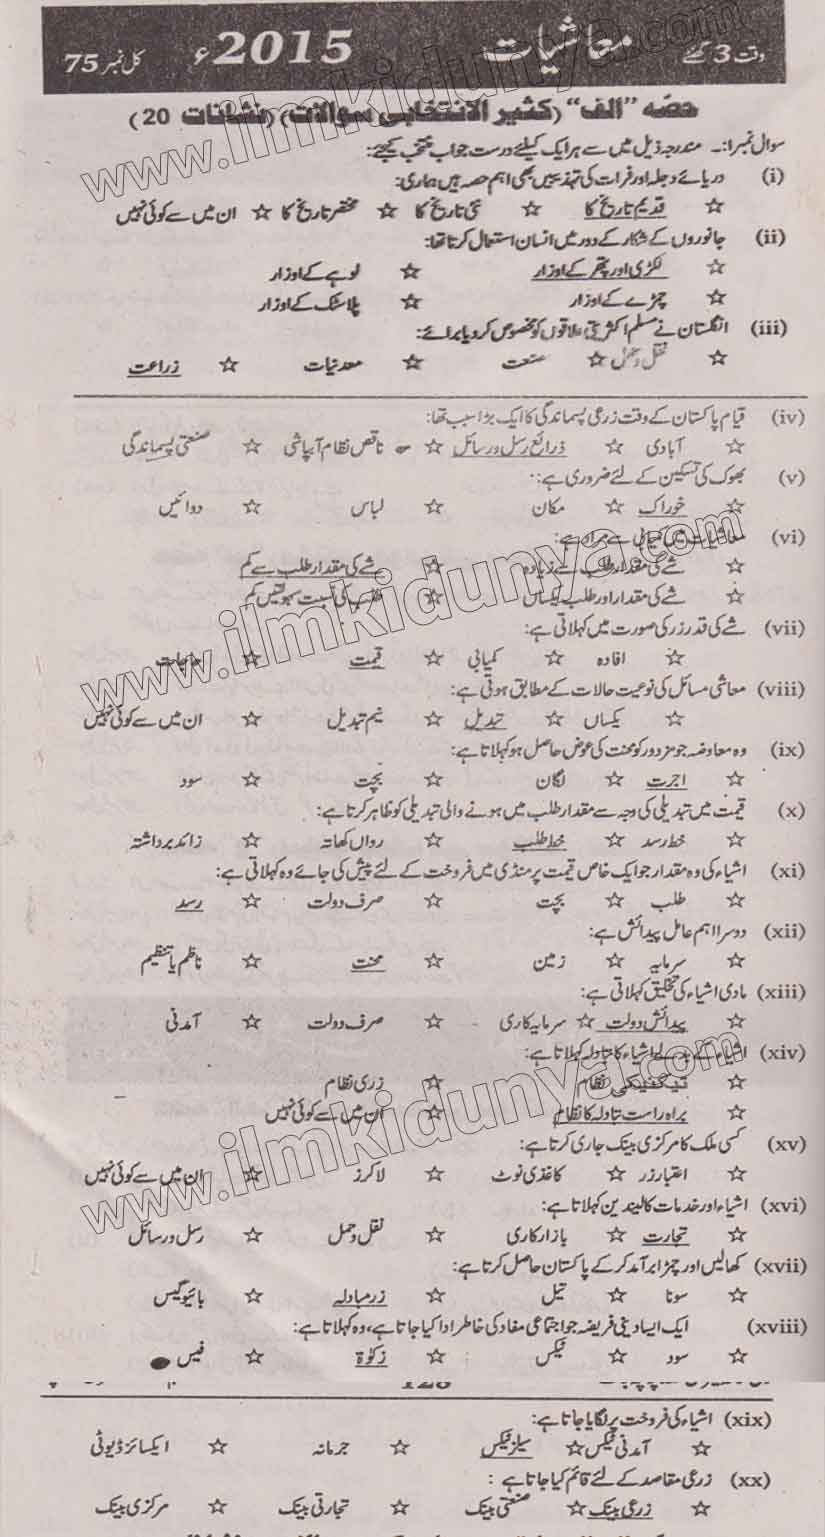 وقت 3 گھنٹے معاشیات 2015ء کل نمبر 75
حصہ "الف" (کثیر الانتخابی سوالات) (نشانات 20)
سوال نمبر ۱:۔ مندرجہ ذیل میں سے ہر ایک کیلئے درست جواب منتخب کیجئے:
(i) دریائے دجلہ اور فرات کی تہذیبیں بھی اہم حصہ ہیں ہماری:
☆ قدیم تاریخ کا ☆ نئی تاریخ کا ☆ مختصر تاریخ کا ☆ ان میں سے کوئی نہیں
(ii) جانوروں کے شکار کے دور میں انسان استعمال کرتا تھا:
☆ لکڑی اور پتھر کے اوزار ☆ لوہے کے اوزار
☆ چمڑے کے اوزار ☆ پلاسٹک کے اوزار
(iii) انگلستان نے مسلم اکثریتی علاقوں کو مخصوص کر دیا برائے:
☆ نقل و حمل ☆ صنعت ☆ معدنیات ☆ زراعت
(iv) قیام پاکستان کے وقت زرعی پسماندگی کا ایک بڑا سبب تھا:
☆ آبادی ☆ ذرائع رسل و رسائل ☆ ناقص نظام آبپاشی ☆ صنعتی پسماندگی
(v) بھوک کی تسکین کے لئے ضروری ہے:
☆ خوراک ☆ مکان ☆ لباس ☆ دوائیں
(vi) معاشیات میں کمیابی سے مراد ہے:
☆ شے کی مقدار طلب سے زیادہ ☆ شے کی مقدار طلب سے کم
☆ شے کی مقدار اور طلب یکساں ☆ طلب کی نسبت سہولتیں کم
(vii) شے کی قدر زر کی صورت میں کہلاتی ہے:
☆ افادہ ☆ کمیابی ☆ قیمت ☆ حاجات
(viii) معاشی مسائل کی نوعیت حالات کے مطابق ہوتی ہے:
☆ یکساں ☆ تبدیل ☆ نیم تبدیل ☆ ان میں سے کوئی نہیں
(ix) وہ معاوضہ جو مزدور کو محنت کی عوض حاصل ہو کہلاتا ہے:
☆ اجرت ☆ لگان ☆ بچت ☆ سود
(x) قیمت میں تبدیلی کی وجہ سے مقدار طلب میں ہونے والی تبدیلی کو ظاہر کرتا ہے:
☆ خط رسد ☆ خط طلب ☆ رواں کھاتہ ☆ زائد برداشتہ
(xi) اشیاء کی وہ مقدار جو ایک خاص قیمت پر منڈی میں فروخت کے لئے پیش کی جائے وہ کہلاتی ہے:
☆ طلب ☆ بچت ☆ صرف دولت ☆ رسد
(xii) دوسرا اہم عامل پیدائش ہے:
☆ سرمایہ ☆ زمین ☆ محنت ☆ ناظم یا تنظیم
(xiii) مادی اشیاء کی تخلیق کہلاتی ہے:
☆ پیدائش دولت ☆ سرمایہ کاری ☆ صرف دولت ☆ آمدنی
(xiv) اشیاء کے بدلے اشیاء کا تبادلہ کہلاتا ہے:
☆ تیکنیکی نظام ☆ زری نظام
☆ براہ راست تبادلہ کا نظام ☆ ان میں سے کوئی نہیں
(xv) کسی ملک کا مرکزی بینک جاری کرتا ہے:
☆ اعتبار زر ☆ کاغذی نوٹ ☆ لاکرز ☆ ان میں سے کوئی نہیں
(xvi) اشیاء اور خدمات کا لین دین کہلاتا ہے:
☆ تجارت ☆ بازار کاری ☆ نقل و حمل ☆ رسل و رسائل
(xvii) کھالیں اور چمڑا برآمد کر کے پاکستان حاصل کرتا ہے:
☆ سونا ☆ تیل ☆ زرمبادلہ ☆ بائیو گیس
(xviii) ایک ایسا دینی فریضہ جو اجتماعی مفاد کی خاطر ادا کیا جاتا ہے، وہ کہلاتا ہے:
☆ سود ☆ ٹیکس ☆ زکوٰۃ ☆ فیس
(xix) اشیاء کی فروخت پر لگایا جاتا ہے:
☆ آمدنی ٹیکس ☆ سیلز ٹیکس ☆ جرمانہ ☆ ایکسائز ڈیوٹی
(xx) زرعی مقاصد کے لئے قائم کیا جاتا ہے:
☆ زرعی بینک ☆ صنعتی بینک ☆ تجارتی بینک ☆ مرکزی بینک
www.ilmkidunya.com
www.ilmkidunya.com
www.ilmkidunya.com